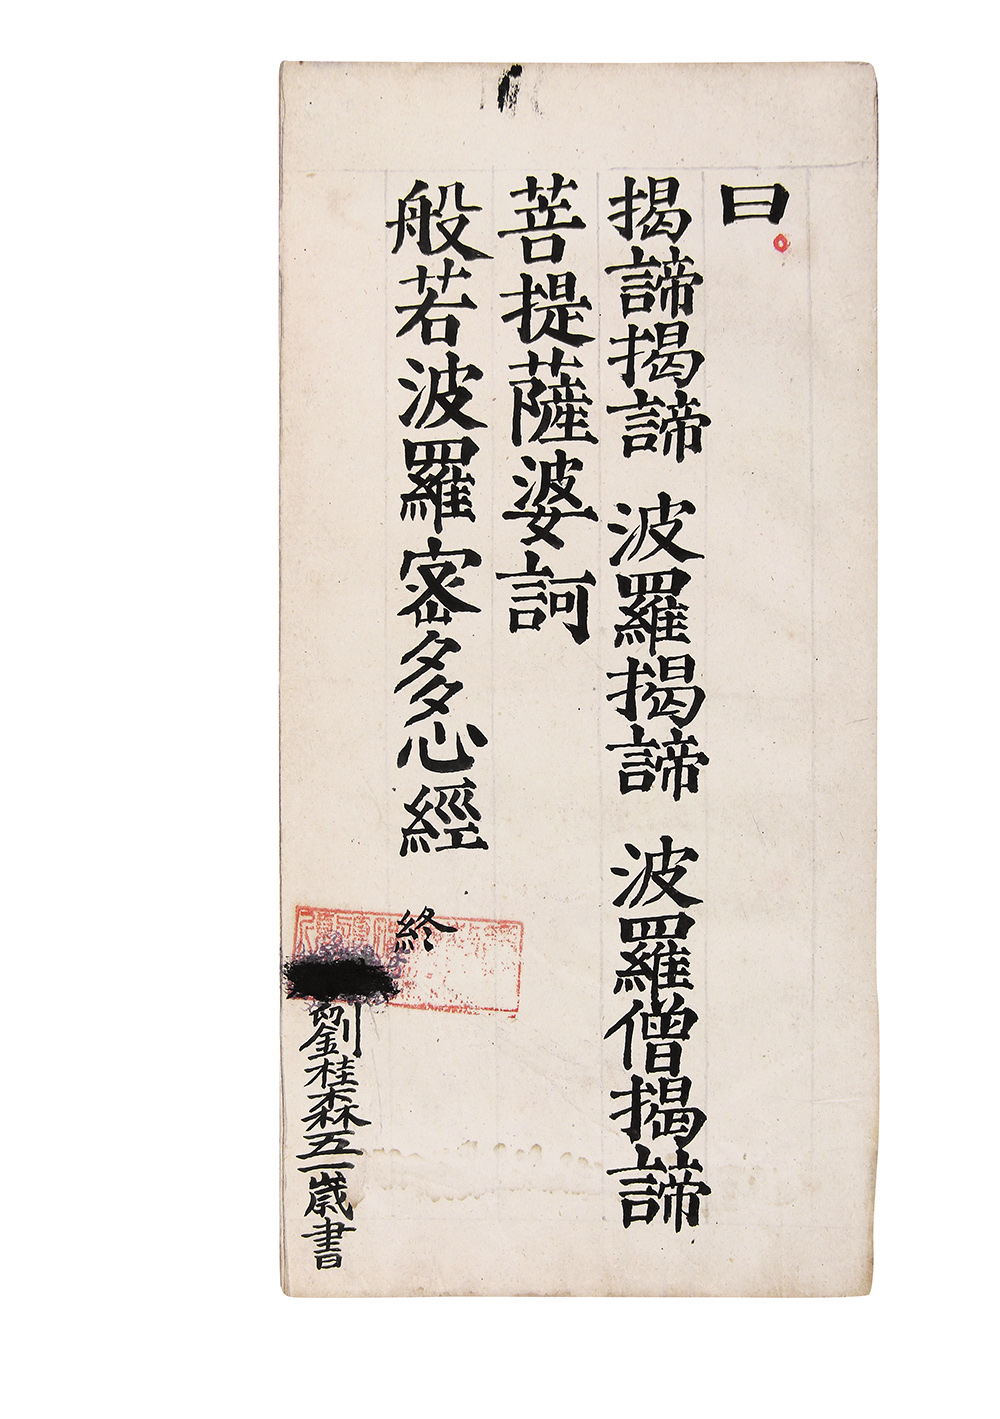 曰
揭諦揭諦 波羅揭諦 波羅僧揭諦
菩提薩婆訶
般若波羅密多心經 終
劉桂森五一歲書